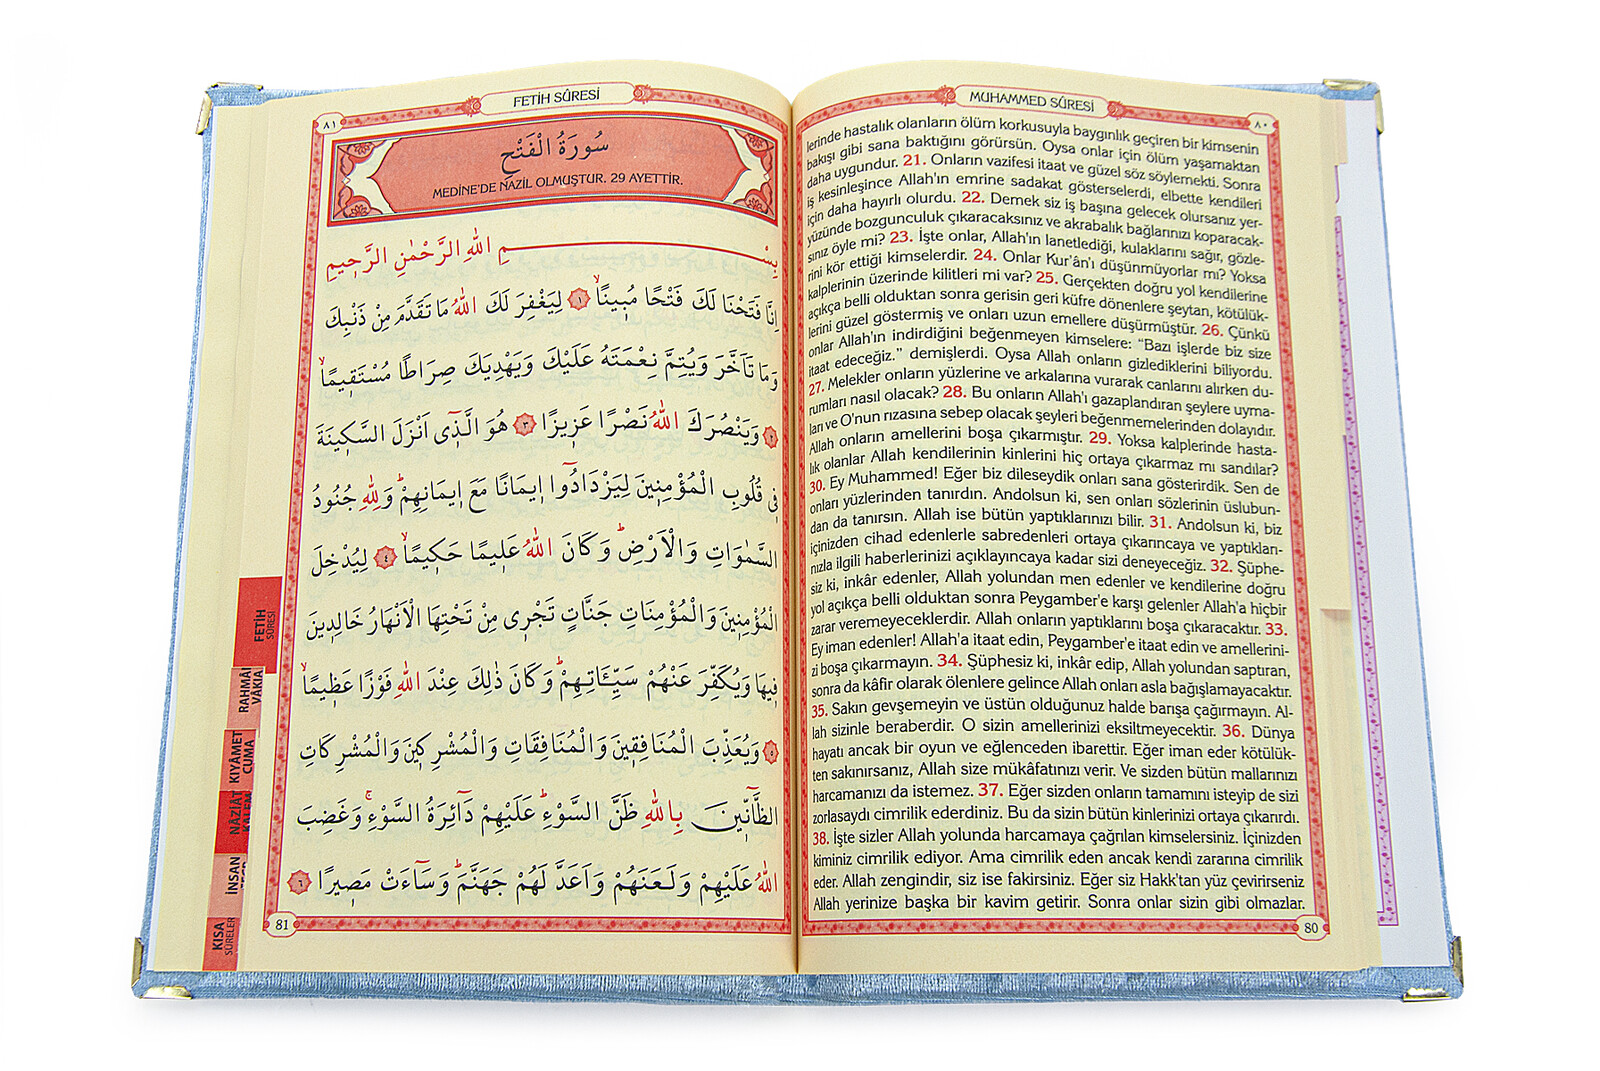 MUHAMMED SÛRESİ
٨٠
lerinde hastalık olanların ölüm korkusuyla baygınlık geçiren bir kimsenin
bakışı gibi sana baktığını görürsün. Oysa onlar için ölüm yaşamaktan
daha uygundur. 21. Onların vazifesi itaat ve güzel söz söylemekti. Sonra
iş kesinleşince Allah'ın emrine sadakat gösterselerdi, elbette kendileri
için daha hayırlı olurdu. 22. Demek siz iş başına gelecek olursanız yer-
yüzünde bozgunculuk çıkaracaksınız ve akrabalık bağlarınızı koparacak-
sınız öyle mi? 23. İşte onlar, Allah'ın lanetlediği, kulaklarını sağır, gözle-
rini kör ettiği kimselerdir. 24. Onlar Kur'ân'ı düşünmüyorlar mı? Yoksa
kalplerinin üzerinde kilitleri mi var? 25. Gerçekten doğru yol kendilerine
açıkça belli olduktan sonra gerisin geri küfre dönenlere şeytan, kötülük-
lerini güzel göstermiş ve onları uzun emellere düşürmüştür. 26. Çünkü
onlar Allah'ın indirdiğini beğenmeyen kimselere: “Bazı işlerde biz size
itaat edeceğiz.” demişlerdi. Oysa Allah onların gizlediklerini biliyordu.
27. Melekler onların yüzlerine ve arkalarına vurarak canlarını alırken du-
rumları nasıl olacak? 28. Bu onların Allah'ı gazaplandıran şeylere uyma-
ları ve O'nun rızasına sebep olacak şeyleri beğenmemelerinden dolayıdır.
Allah onların amellerini boşa çıkarmıştır. 29. Yoksa kalplerinde hasta-
lık olanlar Allah kendilerinin kinlerini hiç ortaya çıkarmaz mı sandılar?
30. Ey Muhammed! Eğer biz dileseydik onları sana gösterirdik. Sen de
onları yüzlerinden tanırdın. Andolsun ki, sen onları sözlerinin üslubun-
dan da tanırsın. Allah ise bütün yaptıklarınızı bilir. 31. Andolsun ki, biz
içinizden cihad edenlerle sabredenleri ortaya çıkarıncaya ve yaptıkları-
nızla ilgili haberlerinizi açıklayıncaya kadar sizi deneyeceğiz. 32. Şüphe-
siz ki, inkâr edenler, Allah yolundan men edenler ve kendilerine doğru
yol açıkça belli olduktan sonra Peygamber'e karşı gelenler Allah'a hiçbir
zarar veremeyeceklerdir. Allah onların yaptıklarını boşa çıkaracaktır. 33.
Ey iman edenler! Allah'a itaat edin, Peygamber'e itaat edin ve amellerini-
zi boşa çıkarmayın. 34. Şüphesiz ki, inkâr edip, Allah yolundan saptıran,
sonra da kâfir olarak ölenlere gelince Allah onları asla bağışlamayacaktır.
35. Sakın gevşemeyin ve üstün olduğunuz halde barışa çağırmayın. Al-
lah sizinle beraberdir. O sizin amellerinizi eksiltmeyecektir. 36. Dünya
hayatı ancak bir oyun ve eğlenceden ibarettir. Eğer iman eder kötülük-
ten sakınırsanız, Allah size mükâfatınızı verir. Ve sizden bütün mallarınızı
harcamanızı da istemez. 37. Eğer sizden onların tamamını isteyip de sizi
zorlasaydı cimrilik ederdiniz. Bu da sizin bütün kinlerinizi ortaya çıkarırdı.
38. İşte sizler Allah yolunda harcamaya çağrılan kimselersiniz. İçinizden
kiminiz cimrilik ediyor. Ama cimrilik eden ancak kendi zararına cimrilik
eder. Allah zengindir, siz ise fakirsiniz. Eğer siz Hakk'tan yüz çevirirseniz
Allah yerinize başka bir kavim getirir. Sonra onlar sizin gibi olmazlar.
80
FETİH SÛRESİ
٨١
سُورَةُ الْفَتْحِ
MEDİNE'DE NAZİL OLMUŞTUR. 29 AYETTİR.
بِسْمِ اللهِ الرَّحْمٰنِ الرَّحِيمِ
اِنَّا فَتَحْنَا لَكَ فَتْحًا مُبِينًاۙ ١ لِيَغْفِرَ لَكَ اللهُ مَا تَقَدَّمَ مِنْ ذَنْبِكَ
وَمَا تَاَخَّرَ وَيُتِمَّ نِعْمَتَهُ عَلَيْكَ وَيَهْدِيَكَ صِرَاطًا مُسْتَقِيمًاۙ
٢ وَيَنْصُرَكَ اللهُ نَصْرًا عَزِيزًا ٣ هُوَ الَّذِٓي اَنْزَلَ السَّكِينَةَ
فِي قُلُوبِ الْمُؤْمِنِينَ لِيَزْدَادُٓوا اِيمَانًا مَعَ اِيمَانِهِمْۜ وَلِلّٰهِ جُنُودُ
السَّمٰوَاتِ وَالْاَرْضِۜ وَكَانَ اللهُ عَلِيمًا حَكِيمًاۙ ٤ لِيُدْخِلَ
الْمُؤْمِنِينَ وَالْمُؤْمِنَاتِ جَنَّاتٍ تَجْرِي مِنْ تَحْتِهَا الْاَنْهَارُ خَالِدِينَ
فِيهَا وَيُكَفِّرَ عَنْهُمْ سَيِّـَٔاتِهِمْۜ وَكَانَ ذٰلِكَ عِنْدَ اللهِ فَوْزًا عَظِيمًاۙ
٥ وَيُعَذِّبَ الْمُنَافِقِينَ وَالْمُنَافِقَاتِ وَالْمُشْرِكِينَ وَالْمُشْرِكَاتِ
الظَّٓانِّينَ بِاللهِ ظَنَّ السَّوْءِۜ عَلَيْهِمْ دَٓائِرَةُ السَّوْءِۚ وَغَضِبَ
اللهُ عَلَيْهِمْ وَلَعَنَهُمْ وَاَعَدَّ لَهُمْ جَهَنَّمَۜ وَسَٓاءَتْ مَصِيرًا ٦
81
FETİH
SÛRESİ
VÂKIA
KIYÂMET
CUMA
NÂZİÂT
İNSAN
KISA
SÛRELER